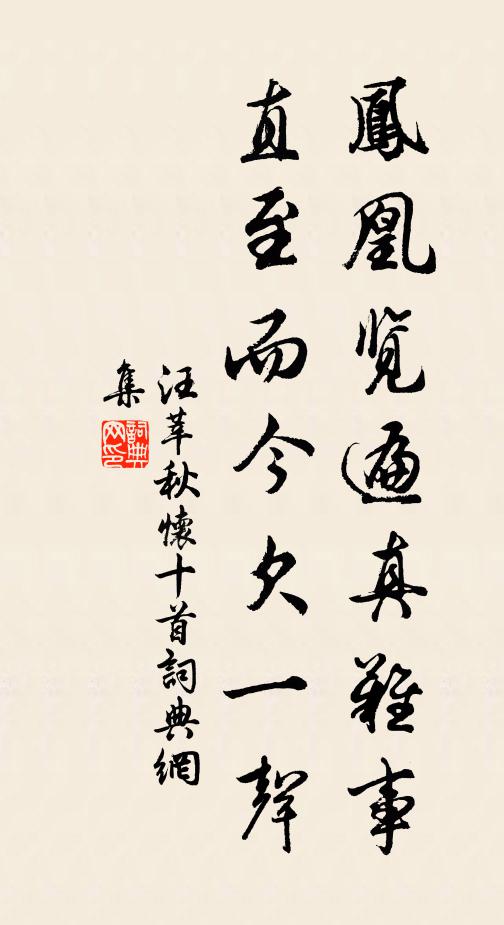 鳳凰覽遍真難事
直至而今欠一聲
汪莘秋懷十首詞典網
集
詞典
网印